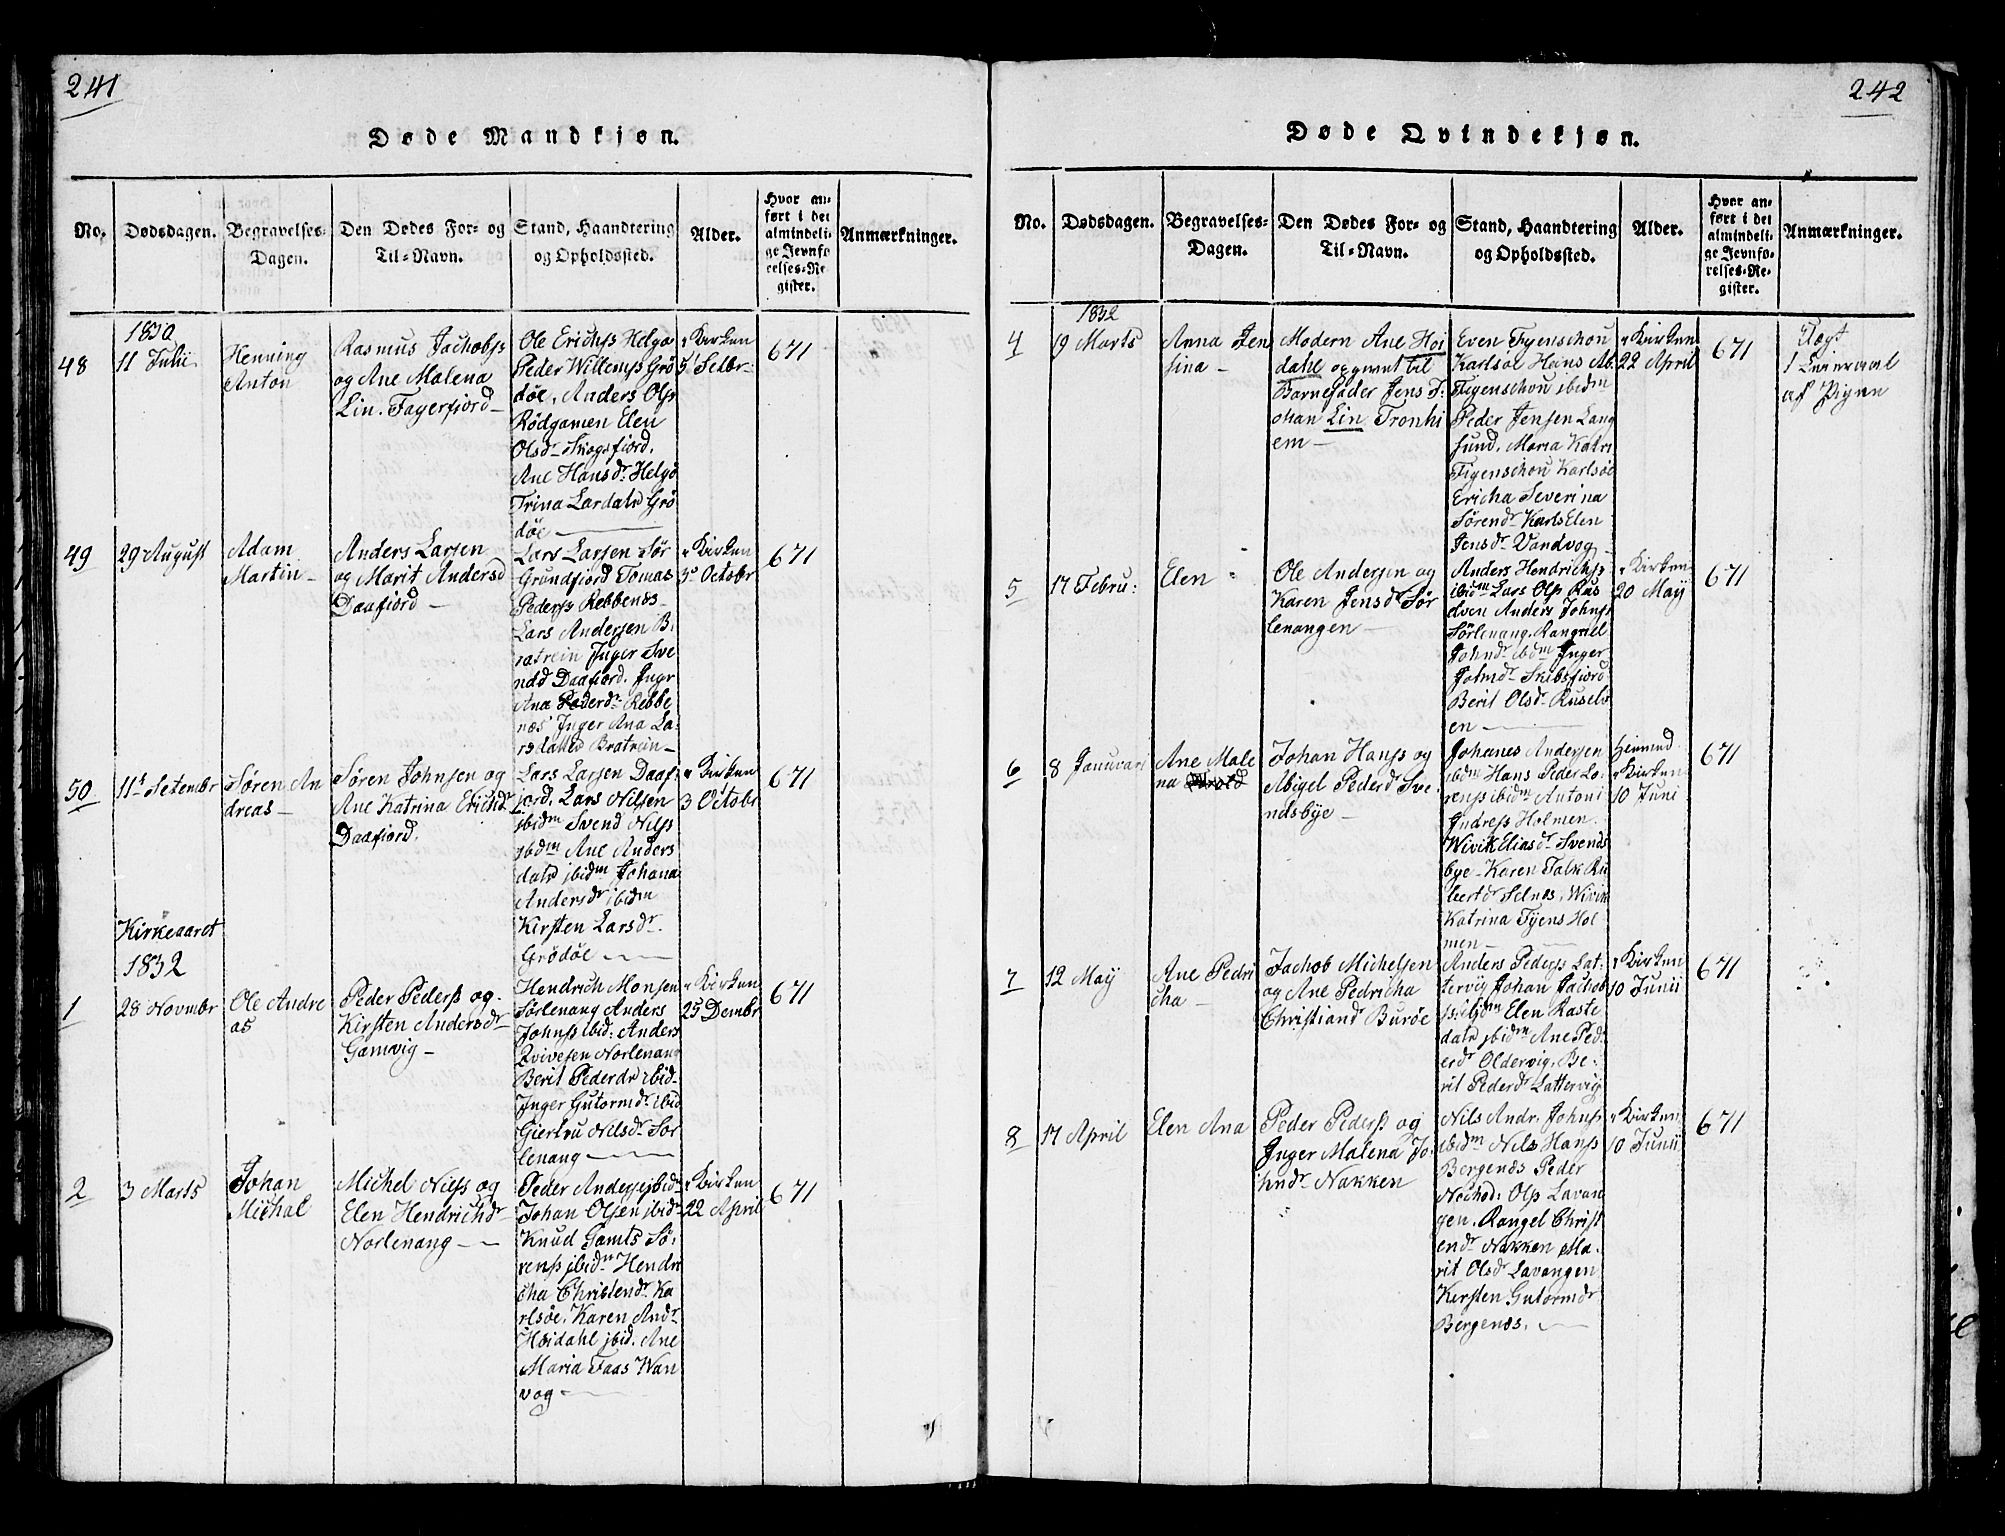 241
Døde Mandkjøn.
No.
Dødsdagen.
Begravelses-
Dagen.
Den Dødes For- og
Til-Navn.
Stand, Haandtering
og Opholdssted.
Alder.
Hvor an-
ført i det
almindeli-
ge Jevnfø-
relses-Re-
gister.
Anmærkninger.
48
11 Julii
Henning
Anton
Rasmus Jachobss
og Ane Malena
Lin. Fagerfjord
Ole Erichss Helgø
Peder Willemss Grø
døe, Anders Olss
Rødgamen Elen
Olsdr Skogsfjord,
Ane Hansdr Helgø
Trina Lardatr Grø
døe
Kirken
671
49
29 August
Adam
Martin
Anders Larsen
og Marit Andersd
Daafjord
Lars Larsen Sør
Grundfjord Tomas
Pederss Rebbenes
Lars Andersen B.
ratrein Inger Sve
ndd Daafiord. Ingr
Ana Pederdr Rebbe
næs Inger Ana La
rsdatter Bratrein
Kirken
3 Octobr
671
50
11 Setembr
Søren An
dreas
Søren Johnsen og
Ane Katrina Erichdr
Daafiord.
Lars Larsen Daaf
jord, Lars Nilsen
jbidm Svend Nilss
jbdm Ane Anders
datr jbidm Johana
Andersdr ibidm
Kirsten Larsdr
Grødøe
Kirken
3 Octobr
671
Kirkeaaret
1832
1
28 Novmbr
Ole Andre
as
Peder Pederss og
Kirsten Andersdr
Gamvig
Hendrich Monsen
Sørlenang Anders
Johnss ibid: Anders
Qvivesen Norlenang
Berit Pederdr ibid
Inger Gutormdr ibid
Giertru Nilsdr Sør
lenang
Kirken
25 Dembr
671
2
3 Marts
Johan
Michal
Michel Nilss og
Elen Hendrichdr
Norlenang
Peder Andersejbid
Johan Olsen ibid
Knud Gamts Sø
renss jbidm Hendri
cha Christendr Ka
rlsøe, Karen Andr
Høidahl jbid. Ane
Maria Faas Wan
vog
Kirken
22 April
671
242
Døde Qvindekjøn.
No.
Dødsdagen.
Begravelses-
Dagen.
Den Dødes For- og
Til-Navn.
Stand, Haandtering
og Opholdssted.
Alder.
Hvor an-
ført i det
almindeli-
ge Jevnfø-
relses-Re-
gister.
Anmærkninger.
1832
4
19 Marts
Anna Jen
sina
Modern Ane Høi
dahl opgivent til
Barnefader Jens J:
ohan Lin Tronhi
em
Even Fygenschou
Karlsøe Hans Ab.
Figenschou jbidm
Peder Jensen Lang
sund, Maria Katri
Figenschou Karlsøe
Ericha Severina
Sørendr Karls Elen
Jensdr Vandvog
Kirken
22 April
671
1 Leieraal
af Pigen
5
17 Febru:
Elen
Ole Andersen og
Karen Jensdr Sør
lenangen
Anders Hendrichss
ibidm Lars Olss Rus
elven Anders Johnss
Sørlenang, Rangniel
Johndr ibdm Inger
Johndr Skibsfiord
Berit Olsdr Ruselv
en
Kirken
20 Maij
671
6
8 Januvari
Ane Male
na
Johan Hanss og
Abigel Pederd Sve
ndsbye
Johanes Andersen
ibidm Hans Peder Lo
renss ibidm Antoni
Indress Holmen
Wivik Eliasdr Svends
bye Karen Falk Ru
bertdr Selnes, Wivik
Katrina Fyens Hol
men
Kirken
10 Juni
671
7
12 May
Ane Pedri
cha
Jachob Michelsen
og Ane Pedricha
Christiand Burøe
Anders Pederss Lat
tervig Johan Jachob
Elen Kaste
datr jbidm Ane Ped
erdr Oldervig, Be
rit Pederdr Lattervig
Kirken
10 Junii
671
8
17 April
Elen Ana
Peder Pederss og
Inger Malena Jo
hndr Nakken
Nils Andr. Johnss
ibidm Nils Hanss
Bergenes Peder
Olss Lavan
gen. Rangel Christ
endr Nakken Ma
rit Olsdr Lavangen
Kirsten Gutormdr
Bergenæs.
Kirken
10 Junii
671